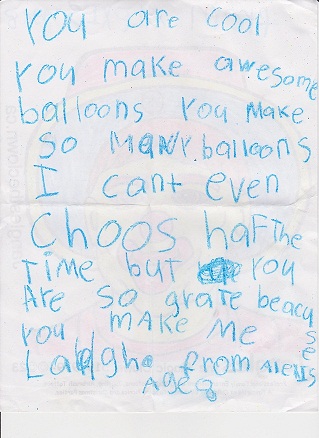 you are cool
you make awesome
balloons you make
so many balloons
I cant even
choos haf the
time but you
Are so grate beacuse
you make me
Laugh from Alexis
Age 8